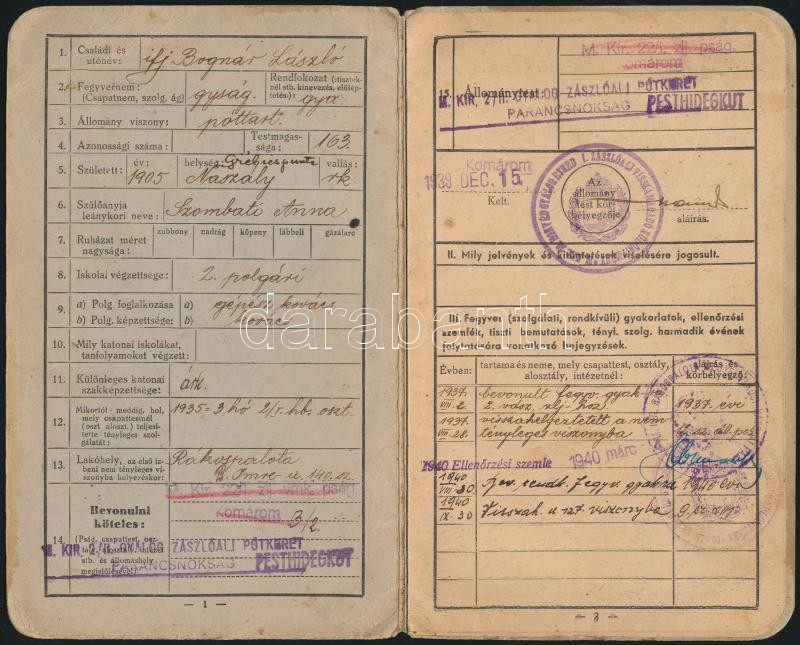 1. Családi és
utónév:
ifj Bognár László
2. Fegyvernem:
(Csapatnem, szolg. ág)
gyság.
Rendfokozat (tisztek-
nél stb. kinevezés, előlép-
tetés:)
gya
3. Állomány viszony:
póttart.
4. Azonossági száma:
Testmagas-
sága:
163
5. Született:
év:
1905
helység:
Naszály
vallás:
rk
6. Szülőanyja
leánykori neve:
Szombati Anna
7. Ruházat méret
nagysága:
zubbony nadrág köpeny lábbeli gázálarc
8. Iskolai végzettsége:
2. polgári
9. a) Polg. foglalkozása
b) Polg. képzettsége:
a) gépész kovács
b) kovács
10. Mily katonai iskolákat,
tanfolyamokat végzett:
11. Különleges katonai
szakképzettsége:
12. Mikortól - meddig, hol,
mely csapattestnél
(oszt. aloszt.) teljesí-
tette tényleges szol-
gálatát:
1935=3 hó 2/I. hb. oszt.
13. Lakóhely, az első íz-
beni nem tényleges vi-
szonyba helyezéskor:
Rákospalota
B. Imre u. 140. sz.
M. Kir. 22/I. zlj. pság.
Komárom
3/2
14. Bevonulni
köteles:
(Pság, csapattest, osz-
tály, alosztály, intézet
stb. és állomáshely
megjelölésével)
M. KIR. 2/II. ÖKÁLOG ZÁSZLÓALJ PÓTKERET
PARANCSNOKSÁG PESTHIDEGKUT
— 1 —
M. Kir. 22/I. zlj. pság.
Komárom
15. Állománytest:
M. KIR. 2/II. ZÁSZLÓALJ PÓTKERET
PARANCSNOKSÁG PESTHIDEGKUT
Komárom
1939 DEC. 15.
Kelt.
Az
állomány
test kör-
bélyegzője.
aláírás.
II. Mily jelvények és kitüntetések viselésére jogosult.
III. Fegyver (szolgálati, rendkívüli) gyakorlatok, ellenőrzési
szemlék, tiszti bemutatások, tényl. szolg. harmadik évének
folytatására vonatkozó bejegyzések.
Évben:
tartama és neme, mely csapattest, osztály,
alosztály, intézetnél:
aláírás és
körbélyegző:
1937. VIII. 2. bevonult fegyv. gyak.
1937. évi
1937. VIII. 28. visszahelyeztetett a nem
tényleges viszonyba
1940 Ellenőrzési szemle 1940 márc
1940 VIII. 30. Bev. rendk. fegyv. gyakra 1940 évi
1940 IX. 30 Visszah. a nt. viszonyba
darabanth